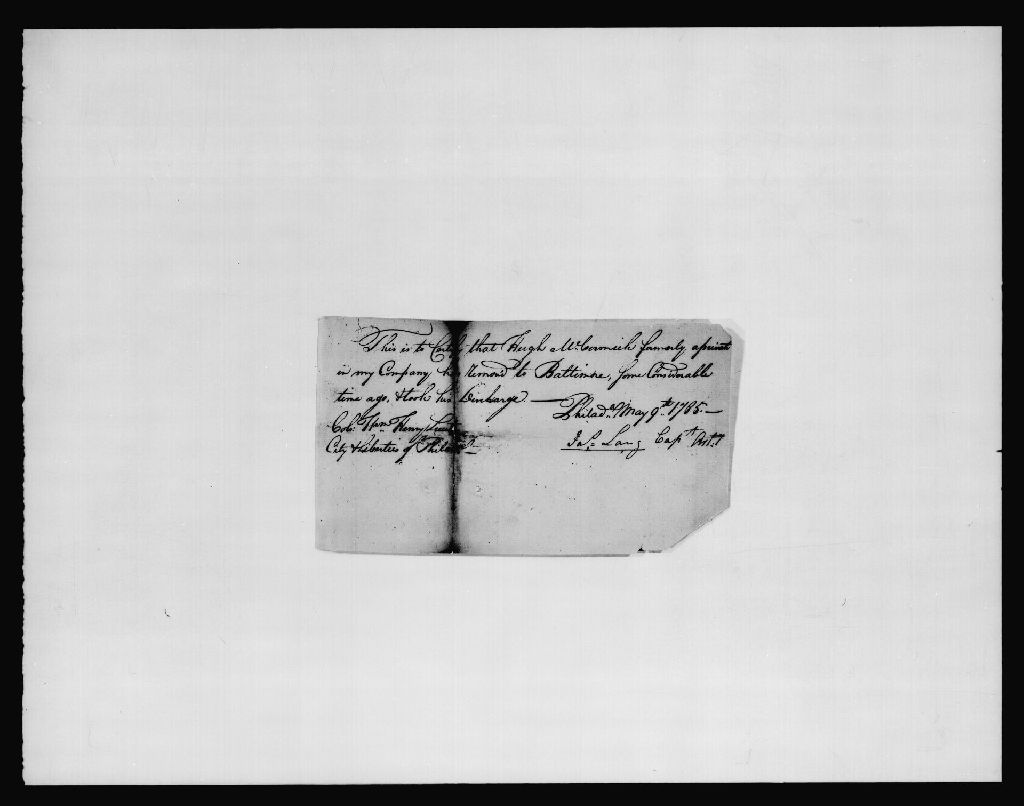 This is to Certify that Hugh McCormick formerly a privat
in my Company has Remov'd to Baltimore, some Considerable
time ago, & took his Discharge —
Philad.a May 9th 1785 —
Col. Wm Henry Lieut
City & Liberties of Philad.a
Jas. Lang Capt. Art.y